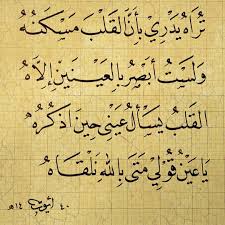 تُرَاهُ يَدْرِي بِأَنَّ القَلْبَ مَسْكَنُهُ
وَلَسْتُ أُبْصِرُ بِالعَيْنَيْنِ إِلَّاهُ
القَلْبُ يَسْأَلُ عَيْنِي حِينَ أَذْكُرُهُ
يَا عَيْنُ قُولِي مَتَى بِاللهِ نَلْقَاهُ